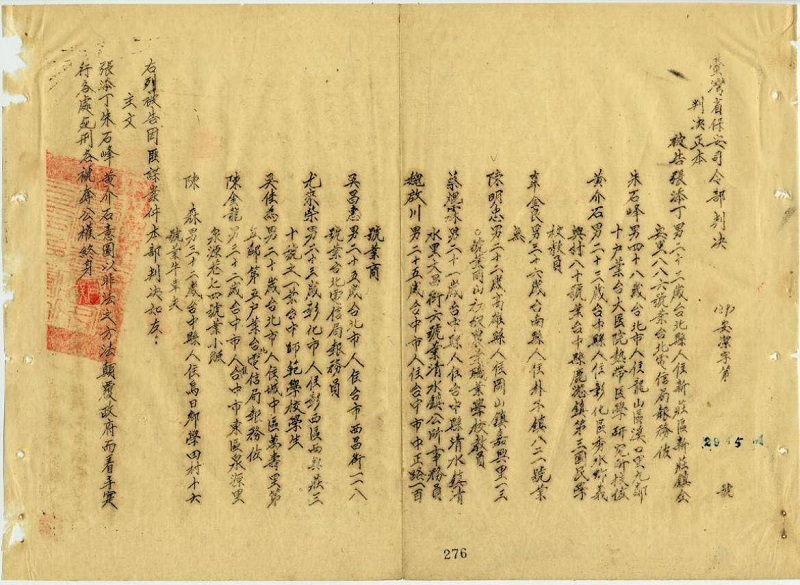 臺灣省保安司令部判決
(卅)安潔字第
2915
號
判決正本
被告張添丁男二十三歲台北縣人住新莊區新莊鎮公
安里八八六號業台北電信局報務佐
朱石峰男四十八歲台北市人住龍山區溪口里九鄰
十戶業台大医院熱帶医學研究所技佐
黃介石男二十三歲台中縣人住彰化區秀水鄉義
興村八十號業台中縣鹿港鎮第三國民學
校教員
辜金良男三十六歲台南縣人住朴子鎮八二一號業
無
陳明忠男二十二歲高雄縣人住岡山鎮嘉興里一三
號業岡山初級農業職業學校教員
蔡 男二十一歲台中縣人住台中縣清水鎮清
水里文昌街六號業清水鎮公所事務員
魏啟川男二十五歲台中市人住台中市中正路一百
號業商
吳昌惠男二十五歲台北市人住台市西昌街一六八
號業台北電信局報務員
尤來榮男二十三歲彰化市人住彰西區西興莊三
十號之一業台中師範學校學生
吳佳為男二十歲台北市人住城中區萬壽里第
五鄰第五戶業台電信局報務佐
陳金龍男三十二歲台中市人住台中市東區泉源里
泉源巷七四號業小販
陳森男二十二歲台中縣人住烏日鄉學田村十六
號業牛車夫
右列被告因匪諜案件本部判決如左：
主文
張添丁朱石峰黃介石意圖以非法之方法顛覆政府而着手實
行各處死刑各褫奪公權終身
276